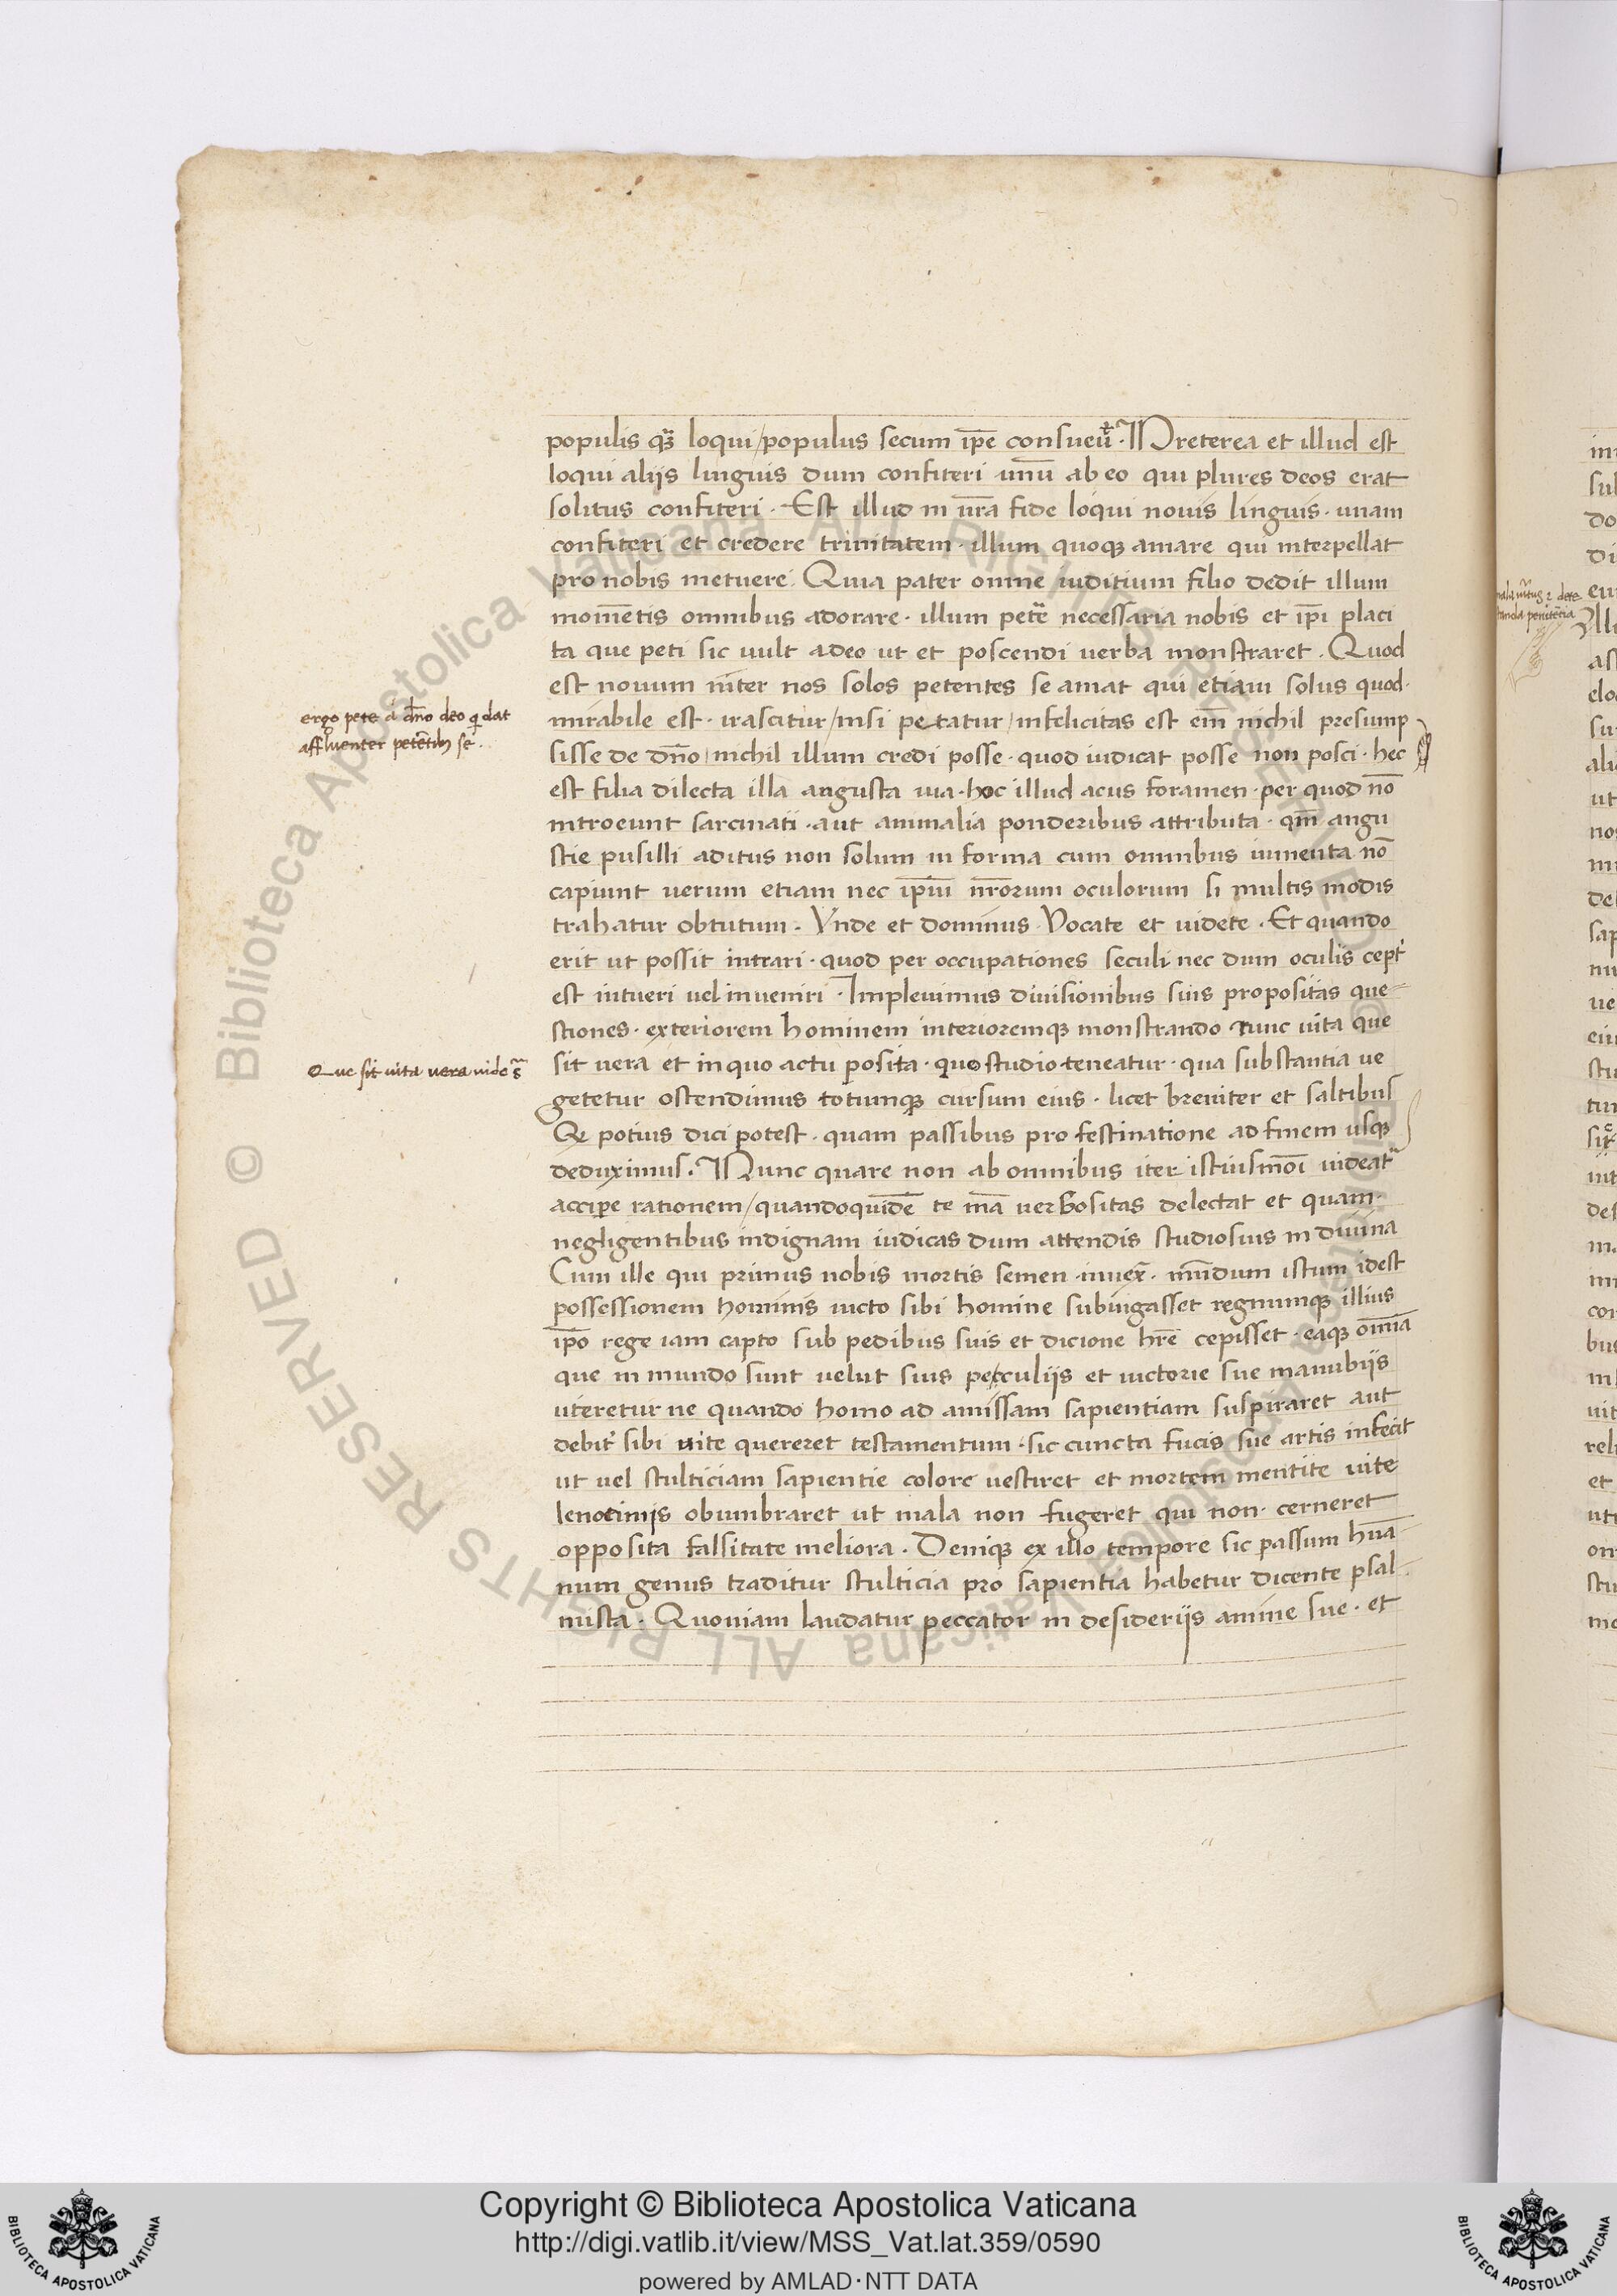 populis qȝ̄ loqui / populus secum ip̄e consueu̇̄t · Preterea et illud est
loqui aliis linguis dum confiteri unū ab eo qui plures deos erat
solitus confiteri · Est illud in nr̄a fide loqui nouis linguis · unam
confiteri et credere trinitatem · illum quoqꝫ amare qui interpellat
pro nobis metuere · Quia pater omne iuditium filio dedit illum
mom̄etis omnibus adorare · illum petr̄e necessaria nobis et ip̄i placi
ta que peti sic uult adeo ut et poscendi uerba monstraret · Quod
est nouum inter nos solos petentes se amat qui etiam solus quod·
mirabile est · irascitur / nisi petatur / infelicitas est em̄ nichil presump
sisse de dn̄o / nichil illum credi posse · quod iudicat posse non posci · hec
est filia dilecta illa angusta uia · hoc illud acus foramen · per quod nō
introeunt sarcinati · aut animalia ponderibus attributa · qm̄ angu
stie pusilli aditus non solum in forma cum omnibus iumenta nō
capiunt uerum etiam nec ip̄iu nr̄orum oculorum si multis modis
trahatur obtutum · Vnde et dominus Vocate et uidete · Et quando
erit ut possit intrari · quod per occupationes seculi nec dum oculis cept'
est intueri uel inueniri · Impleuimus diuisionibus suis propositas que-
stiones · exteriorem hominem interioremqꝫ monstrando nunc uita que
sit uera et in quo actu posita · quo studio teneatur · qua substantia ue
getetur ostendimus totumqꝫ cursum eius · licet breuiter et saltibus
Qꝫ potius dici potest · quam passibus pro festinatione ad finem usqꝫ
deduximus · Nunc quare non ab omnibus iter istiusmōi uideat
accipe rationem / quandoquidē te m̄a uerbositas delectat et quam·
negligentibus indignam iudicas dum attendis studiosius in diuina
Cum ille qui primus nobis mortis semen inuex̄ · mūdum istum idest
possessionem hominis uicto sibi homine subiugasset regnumqꝫ illius
ip̄o rege iam capto sub pedibus suis et dicione hr̄e cepisset · eaqꝫ omīa
que in mundo sunt uelut suis peculiis et uictorie sue manubiis
uteretur ne quando homo ad amissam sapientiam suspiraret aut
debit' sibi uite quereret testamentum · sic cuncta fucis sue artis infecit
ut uel stulticiam sapientie colore uestiret et mortem mentite uite
lenociniis obumbraret ut mala non fugeret qui non· cerneret
opposita falsitate meliora · Deniqꝫ ex illo tempore sic passum hūa-
num genus traditur stulticia pro sapientia habetur dicente psal-
mista · Quoniam laudatur peccator in desideriis anime sue · et
ergo pete á dn̄o deo q' dat
affluenter petētibꝫ se .
Que sit uita uera uide
Copyright © Biblioteca Apostolica Vaticana
http://digi.vatlib.it/view/MSS_Vat.lat.359/0590
powered by AMLAD·NTT DATA
BIBLIOTECA APOSTOLICA VATICANA
BIBLIOTECA APOSTOLICA VATICANA
© Biblioteca Apostolica Vaticana ALL RIGHTS RESERVED
© Biblioteca Apostolica Vaticana ALL RIGHTS RESERVED